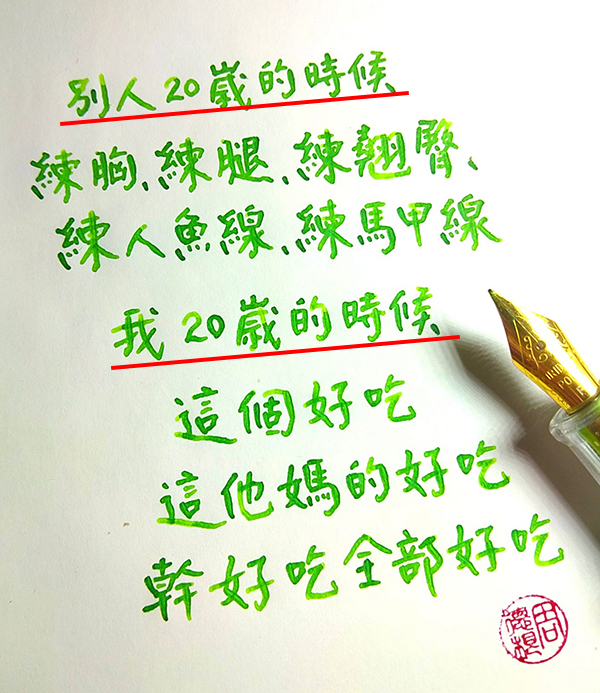 別人20歲的時候
練胸、練腿、練翹臀、
練人魚線、練馬甲線
我20歲的時候
這個好吃
這他媽的好吃
幹好吃全部好吃